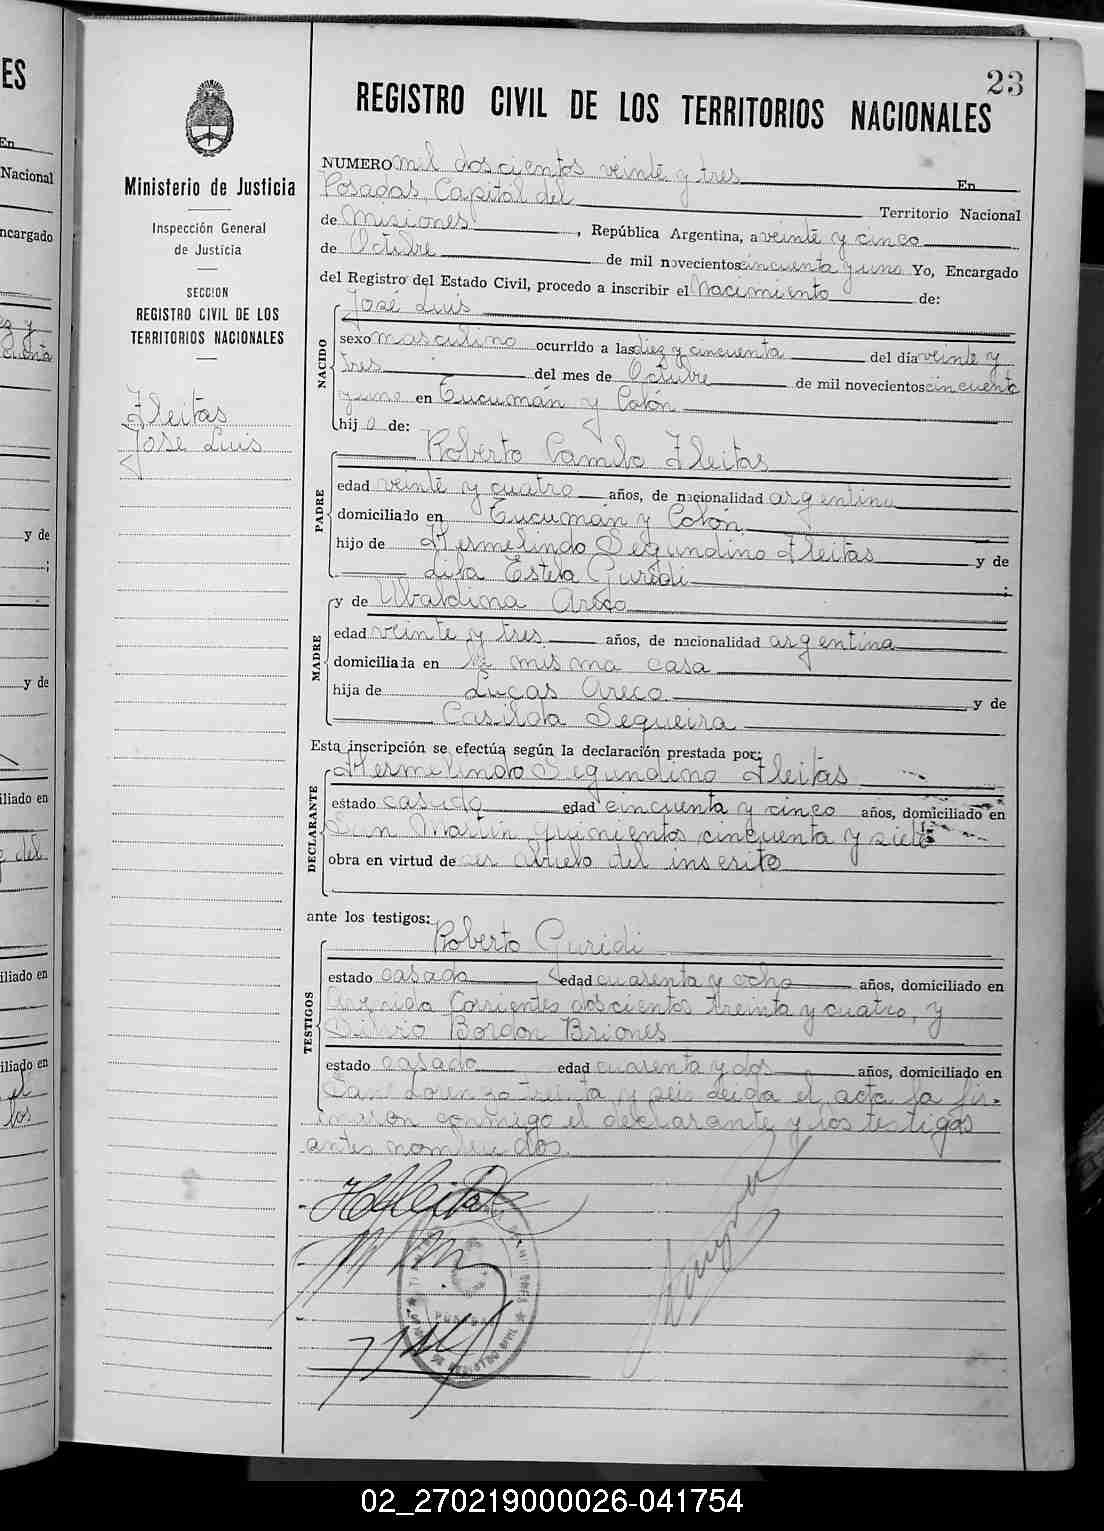 23
REGISTRO CIVIL DE LOS TERRITORIOS NACIONALES
Ministerio de Justicia
Inspección General
de Justicia
SECCION
REGISTRO CIVIL DE LOS
TERRITORIOS NACIONALES
Fleitas
José Luis
NUMERO mil doscientos veinte y tres En
Posadas, Capital del Territorio Nacional
de Misiones, República Argentina, a veinte y cinco
de Octubre de mil novecientos cincuenta y uno Yo, Encargado
del Registro del Estado Civil, procedo a inscribir el Nacimiento de:
NACIDO
José Luis
sexo masculino ocurrido a las diez y cincuenta del día veinte y
tres del mes de Octubre de mil novecientos cincuenta
y uno en Tucumán y Colón
hij o de:
PADRE
Roberto Camilo Fleitas
edad veinte y cuatro años, de nacionalidad argentina
domiciliado en Tucumán y Colón
hijo de Hermelindo Segundino Fleitas y de
Estela Guridi ;
MADRE
y de Ubaldina Areco
edad veinte y tres años, de nacionalidad argentina
domiciliada en la misma casa
hija de Lucas Areco y de
Casilda Sequeira
Esta inscripción se efectúa según la declaración prestada por:
DECLARANTE
Hermelindo Segundino Fleitas
estado casado edad cincuenta y cinco años, domiciliado en
San Martín quinientos cincuenta y siete
obra en virtud de ser abuelo del inscrito
ante los testigos:
TESTIGOS
Roberto Guridi
estado casado edad cuarenta y ocho años, domiciliado en
Avenida Corrientes doscientos treinta y cuatro, y
Bordon Briones
estado casado edad cuarenta y dos años, domiciliado en
San Lorenzo treinta y seis leida el acta la fir-
maron conmigo el declarante y los testigos
antes nombrados.
HSFleitas
ES
En
Nacional
ncargado
y de
;
y de
iliado en
del
iliado en
iliado en
el
los
02_270219000026-041754